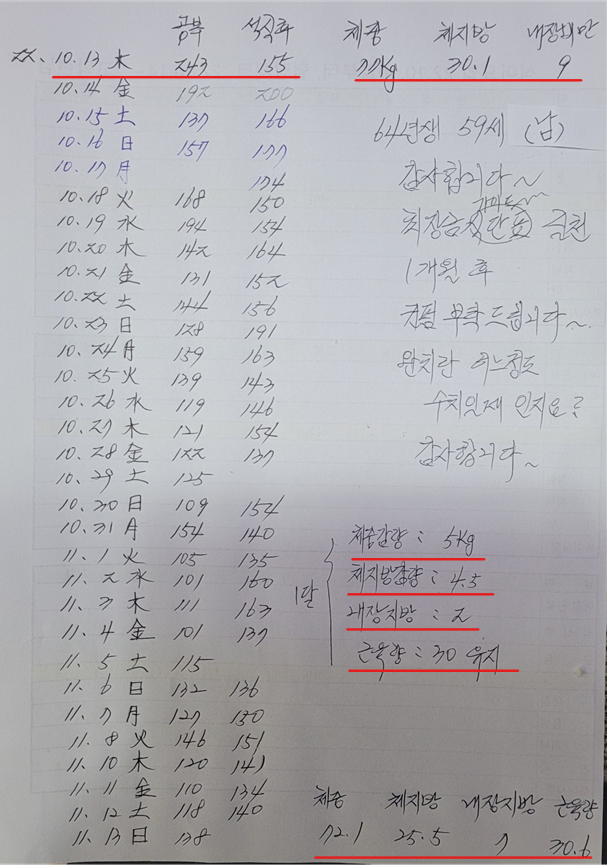 공복 석식후 체중 체지방 내장비만
22、 10.13 木 243 155 77kg 30.1 9
10.14 金 192 200
10.15 土 137 166
10.16 日 157 177
10.17 月 174
10.18 火 168 150
10.19 水 194 154
10.20 木 142 164
10.21 金 131 152
10.22 土 144 156
10.23 日 128 191
10.24 月 159 163
10.25 火 139 143
10.26 水 119 146
10.27 木 121 154
10.28 金 122 137
10.29 土 125
10.30 日 109 154
10.31 月 154 140
11. 1 火 105 135
11. 2 水 101 160
11. 3 木 111 163
11. 4 金 101 137
11. 5 土 115
11. 6 日 132 136
11. 7 月 127 130
11. 8 火 146 151
11. 10 木 120 141
11. 11 金 110 134
11. 12 土 118 140
11. 13 日 138
64년생 59세 (남)
감사합니다~
최장금 실천
1개월 후
컨펌 부탁드립니다~.
완치란 어느정도
수치일때 인지요?
감사합니다~
1달
체중감량 : 5kg
체지방감량 : 4.5
내장지방 : 2
근육량 : 30 유지
체중 체지방 내장지방 근육량
72.1 25.5 7 30.6